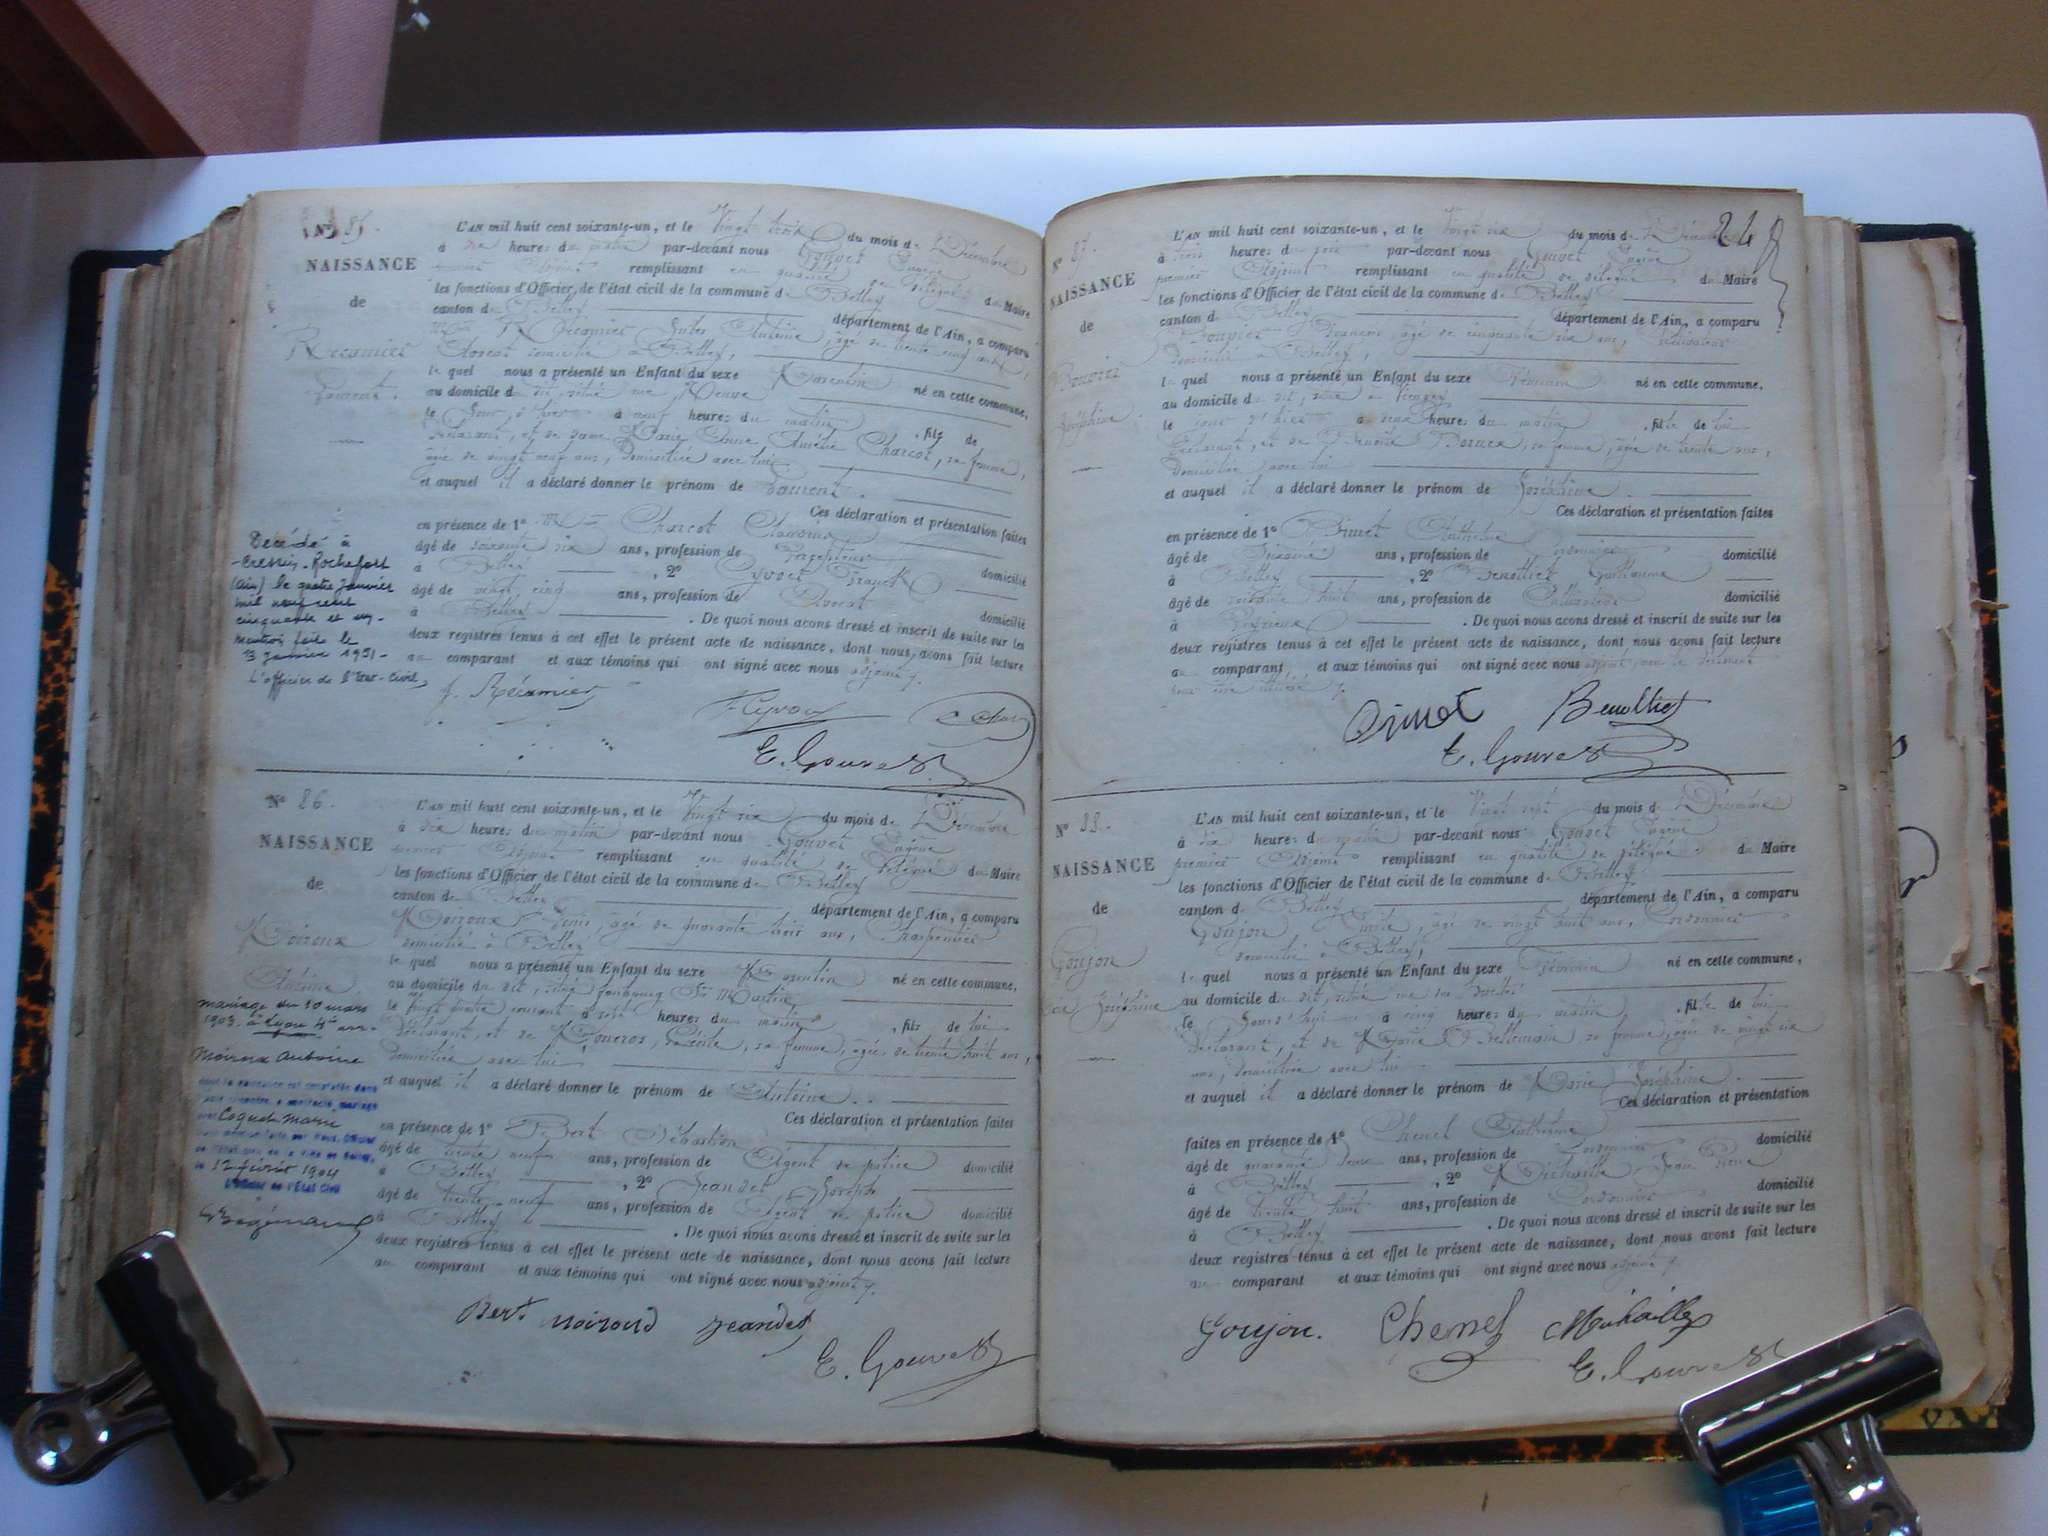 Nº 85.
NAISSANCE
de
Récamier
Laurent.
Décédé à
Cressin-Rochefort
(Ain) le quatre Janvier
mil neuf cent
cinquante et un.
Mention faite le
13 Janvier 1951
L'officier de l'Etat-Civil,
L'AN mil huit cent soixante-un, et le Vingt trois du mois de Décembre
à dix heures du matin par-devant nous Gouvet Eugène
premier Adjoint remplissant en qualité de délégué du Maire
les fonctions d'Officier de l'état civil de la commune de Belley
canton de Belley département de l'Ain, a comparu
Récamier Jules Antoine, âgé de trente cinq ans,
Avocat domicilié à Belley,
lequel nous a présenté un Enfant du sexe Masculin né en cette commune,
au domicile du dit, situé rue Neuve
le jour d'hier à neuf heures du matin, fils de
déclarant, et de dame Marie Anne Amélie Charcot, sa femme,
âgée de vingt neuf ans, domiciliée avec lui
et auquel il a déclaré donner le prénom de Laurent.
Ces déclaration et présentation faites
en présence de 1º Charcot Claudius
âgé de soixante six ans, profession de Percepteur domicilié
à Belley, 2º Cyvoct
âgé de vingt cinq ans, profession de Avocat domicilié
à Belley. De quoi nous avons dressé et inscrit de suite sur les
deux registres tenus à cet effet le présent acte de naissance, dont nous avons fait lecture
au comparant et aux témoins qui ont signé avec nous adjoint.
J. Récamier
F. Cyvoct
E. Gouvet
Nº 86.
NAISSANCE
de
Moiroux
Antoine
mariage du 10 mars
1903 à Lyon 4e arr.
Moiroux Antoine
Coquet Marie
12 février 1904
L'Officier de l'Etat Civil
L'AN mil huit cent soixante-un, et le Vingt six du mois de Décembre
à dix heures du matin par-devant nous Gouvet Eugène
premier Adjoint remplissant en qualité de délégué du Maire
les fonctions d'Officier de l'état civil de la commune de Belley
canton de Belley département de l'Ain, a comparu
Moiroux Denis, âgé de quarante trois ans, Charpentier
domicilié à Belley
lequel nous a présenté un Enfant du sexe Masculin né en cette commune,
au domicile du dit, situé faubourg St Martin
le vingt quatre courant à heures du matin, fils de lui
déclarant, et de sa femme, âgée de trente huit ans,
domiciliée avec lui
et auquel il a déclaré donner le prénom de Antoine.
Ces déclaration et présentation faites
en présence de 1º Bert Sébastien
âgé de trente neuf ans, profession de Agent de police domicilié
à Belley, 2º Jeandet Joseph
âgé de trente neuf ans, profession de Agent de police domicilié
à Belley. De quoi nous avons dressé et inscrit de suite sur les
deux registres tenus à cet effet le présent acte de naissance, dont nous avons fait lecture
au comparant et aux témoins qui ont signé avec nous adjoint.
Bert moiroud Jeandet
E. Gouvet
Nº 87.
NAISSANCE
de
Joséphine
L'AN mil huit cent soixante-un, et le Vingt six du mois de Décembre
à trois heures du soir par-devant nous Gouvet Eugène
premier Adjoint remplissant en qualité de délégué du Maire
les fonctions d'Officier de l'état civil de la commune de Belley
canton de Belley département de l'Ain, a comparu
François, âgé de cinquante six ans, Cultivateur
domicilié à Belley,
lequel nous a présenté un Enfant du sexe Féminin né en cette commune,
au domicile du dit, situé
le jour d'hier à heures du matin, fille de lui
déclarant, et de sa femme, âgée de trente ans,
domiciliée avec lui
et auquel il a déclaré donner le prénom de Joséphine.
Ces déclaration et présentation faites
en présence de 1º Anthelme
âgé de ans, profession de Cordonnier domicilié
à Belley, 2º Benolliet Guillaume
âgé de huit ans, profession de Cultivateur domicilié
à Peyrieu. De quoi nous avons dressé et inscrit de suite sur les
deux registres tenus à cet effet le présent acte de naissance, dont nous avons fait lecture
au comparant, et aux témoins qui ont signé avec nous adjoint,
Benolliet
E. Gouvet
Nº 88.
NAISSANCE
de
Goujon
Joséphine
L'AN mil huit cent soixante-un, et le Vingt sept du mois de Décembre
à dix heures du matin par-devant nous Gouvet Eugène
premier Adjoint remplissant en qualité de délégué du Maire
les fonctions d'Officier de l'état civil de la commune de Belley
canton de Belley département de l'Ain, a comparu
Goujon Emile, âgé de vingt huit ans, Cordonnier
domicilié à Belley,
lequel nous a présenté un Enfant du sexe Féminin né en cette commune,
au domicile du dit, située rue
le jour d'hui à cinq heures du matin, fille de lui
déclarant, et de Marie Bellemain sa femme, âgée de vingt six
ans, domiciliée avec lui
et auquel il a déclaré donner le prénom de Marie Joséphine.
Ces déclaration et présentation
faites en présence de 1º Chenel Anthelme
âgé de quarante deux ans, profession de Cordonnier domicilié
à Belley, 2º Jean Pierre
âgé de trente huit ans, profession de Cordonnier domicilié
à Belley. De quoi nous avons dressé et inscrit de suite sur les
deux registres tenus à cet effet le présent acte de naissance, dont nous avons fait lecture
au comparant et aux témoins qui ont signé avec nous adjoint.
Goujon. Chenel
E. Gouvet